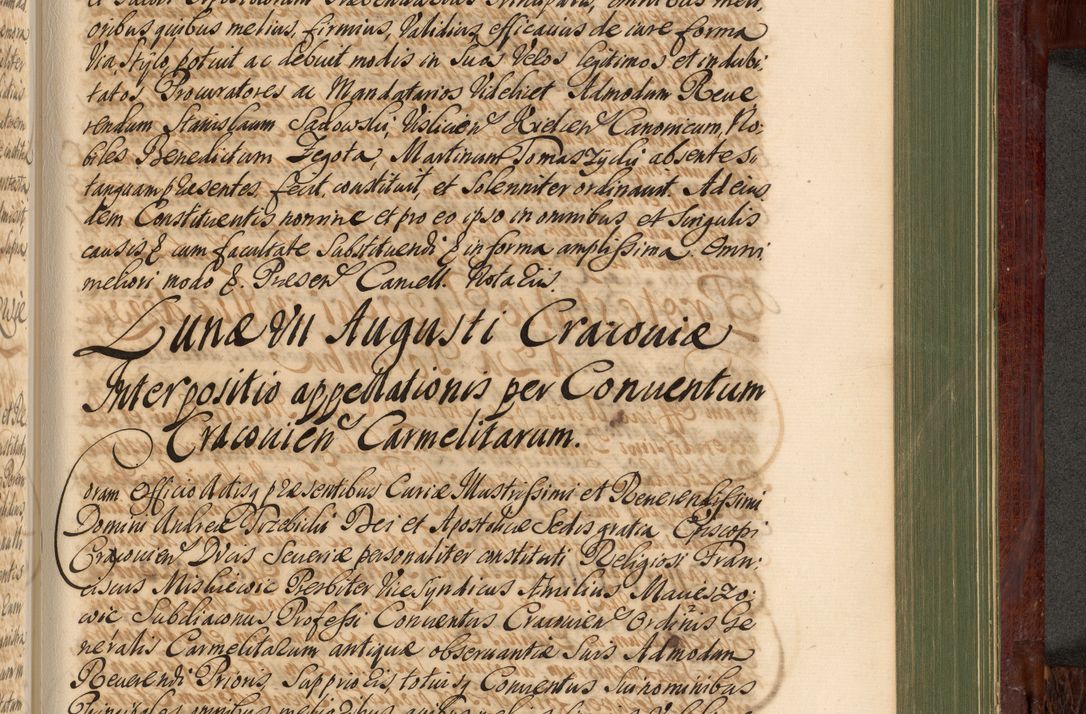 oribus quibus melius, firmius, validius efficacius de iure forma
Via, Stylo, potuit ac debuit modis in Suos Veros legitimos et indubi,
tatos Procuratores ac Mandatarios Videlicet Admodum Reue,
rendum Stanislaum Sadowski, Vislicien Kielcien Canonicum, No,
biles Benedictum Zegota, Martinum Tomaszycki absentes
tanquam præsentes fecit, constituit, et Solenniter ordinauit. Ad eius,
dem Constituentis nomine et pro eo ipso in omnibus et Singulis
causis & cum facultate Substituendi & in forma amplissima. Omni
meliori modo &. Presen Cancell. Nota Eius.
Lunæ VII Augusti Cracouiæ
Interpositio appellationis per Conuentum
Cracouien Carmelitarum.
Coram Officio Actisq præsentibus Curiæ Illustrissimi et Reuerendissimi
Domini Andreæ Trzebicki Dei et Apostolicæ Sedis gratia Episcopi
Cracouien Ducis Seueriæ personaliter constituti Religiosi Fran,
ciscus Miskiewic Presbiter Vice Syndicus Amilius
wic Subdiaconus Professi Conuentus Cracouien Ordinis Ge
neralis Carmelitarum antiquæ obseruantiæ Suis Admodum
Reuerendi Prioris Supprioris, totiusq Conuentus Sui nominibus